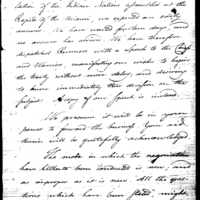 lation of the Indian Nations assembled at the
Rapid of the Miami, we expected an early
answer. We have waited fourteen days, and
no answer has arrived. We have therefore
dispatched Runners with a Speech to the Chiefs
and Warriors, manifesting our wish to begin
the treaty without more delay, and desiring
to know immediately their decision on the
subject. A copy of our Speech is inclosed.
We presume it will be in your
power to forward the business. Your aid
therein will be gratefully acknowledged.
The mode in which the negotiations
have hitherto been conducted is new, and
as improper as it is new. All the ques
tions which have been stated might